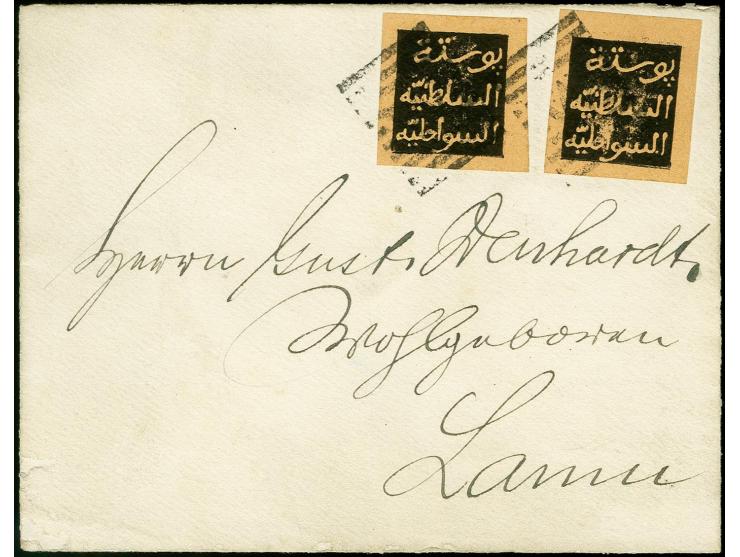 پوستة
السلطنيّة
السواحليّة
پوستة
السلطنيّة
السواحليّة
Herrn Gust. Denhardt.
Wohlgeboren
Lamu